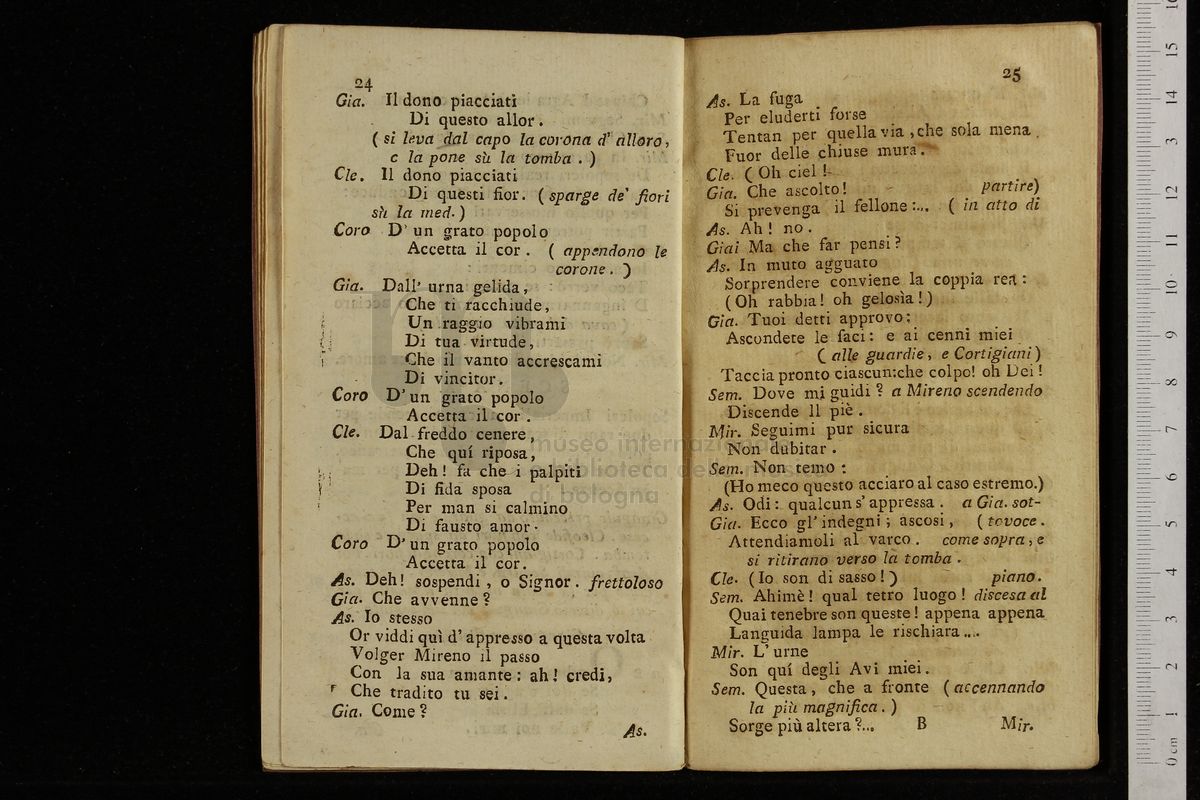 24
Gia. Il dono piacciati
Di questo allor.
( si leva dal capo la corona d' alloro,
e la pone sù la tomba . )
Cle. Il dono piacciati
Di questi fior. ( sparge de' fiori
sù la med. )
Coro D' un grato popolo
Accetta il cor . ( appendono le
corone. )
Gia. Dall' urna gelida,
Che ti racchiude,
Un raggio vibrami
Di tua virtude,
Che il vanto accrescami
Di vincitor.
Coro D' un grato popolo
Accetta il cor .
Cle. Dal freddo cenere,
Che quí riposa,
Deh! fa che i palpiti
Di fida sposa
Per man si calmino
Di fausto amor.
Coro D' un grato popolo
Accetta il cor.
As. Deh! sospendi, o Signor. frettoloso
Gia. Che avvenne?
As. Io stesso
Or viddi quì d' appresso a questa volta
Volger Mireno il passo
Con la sua amante: ah! credi,
Che tradito tu sei.
Gia. Come?
As.
25
As. La fuga
Per eluderti forse
Tentan per quella via, che sola mena
Fuor delle chiuse mura.
Cle. ( Oh ciel!
Gia. Che ascolto! partire)
Si prevenga il fellone:... ( in atto di
As. Ah! no.
Giai Ma che far pensi?
As. In muto agguato
Sorprendere conviene la coppia rea:
(Oh rabbia! oh gelosìa!)
Gia. Tuoi detti approvo:
Ascondete le faci: e ai cenni miei
( alle guardie, e Cortigiani)
Taccia pronto ciascun:che colpo! oh Dei!
Sem. Dove mi guidi? a Mireno scendendo
Discende Il piè.
Mir. Seguimi pur sicura
Non dubitar.
Sem. Non temo:
(Ho meco questo acciaro al caso estremo.)
As. Odi: qualcun s' appressa. a Gia. sot-
Gia. Ecco gl' indegni; ascosi, ( tovoce.
Attendiamoli al varco. come sopra, e
si ritirano verso la tomba .
Cle. (Io son di sasso!) piano.
Sem. Ahimè! qual tetro luogo! discesa al
Quai tenebre son queste! appena appena
Languida lampa le rischiara....
Mir. L' urne
Son quí degli Avi miei.
Sem. Questa, che a fronte (accennando
la più magnifica. )
Sorge più altera?... B Mir.
museo internazionale
biblioteca della musica
di bologna
0 cm 1 2 3 4 5 6 7 8 9 10 11 12 13 14 15